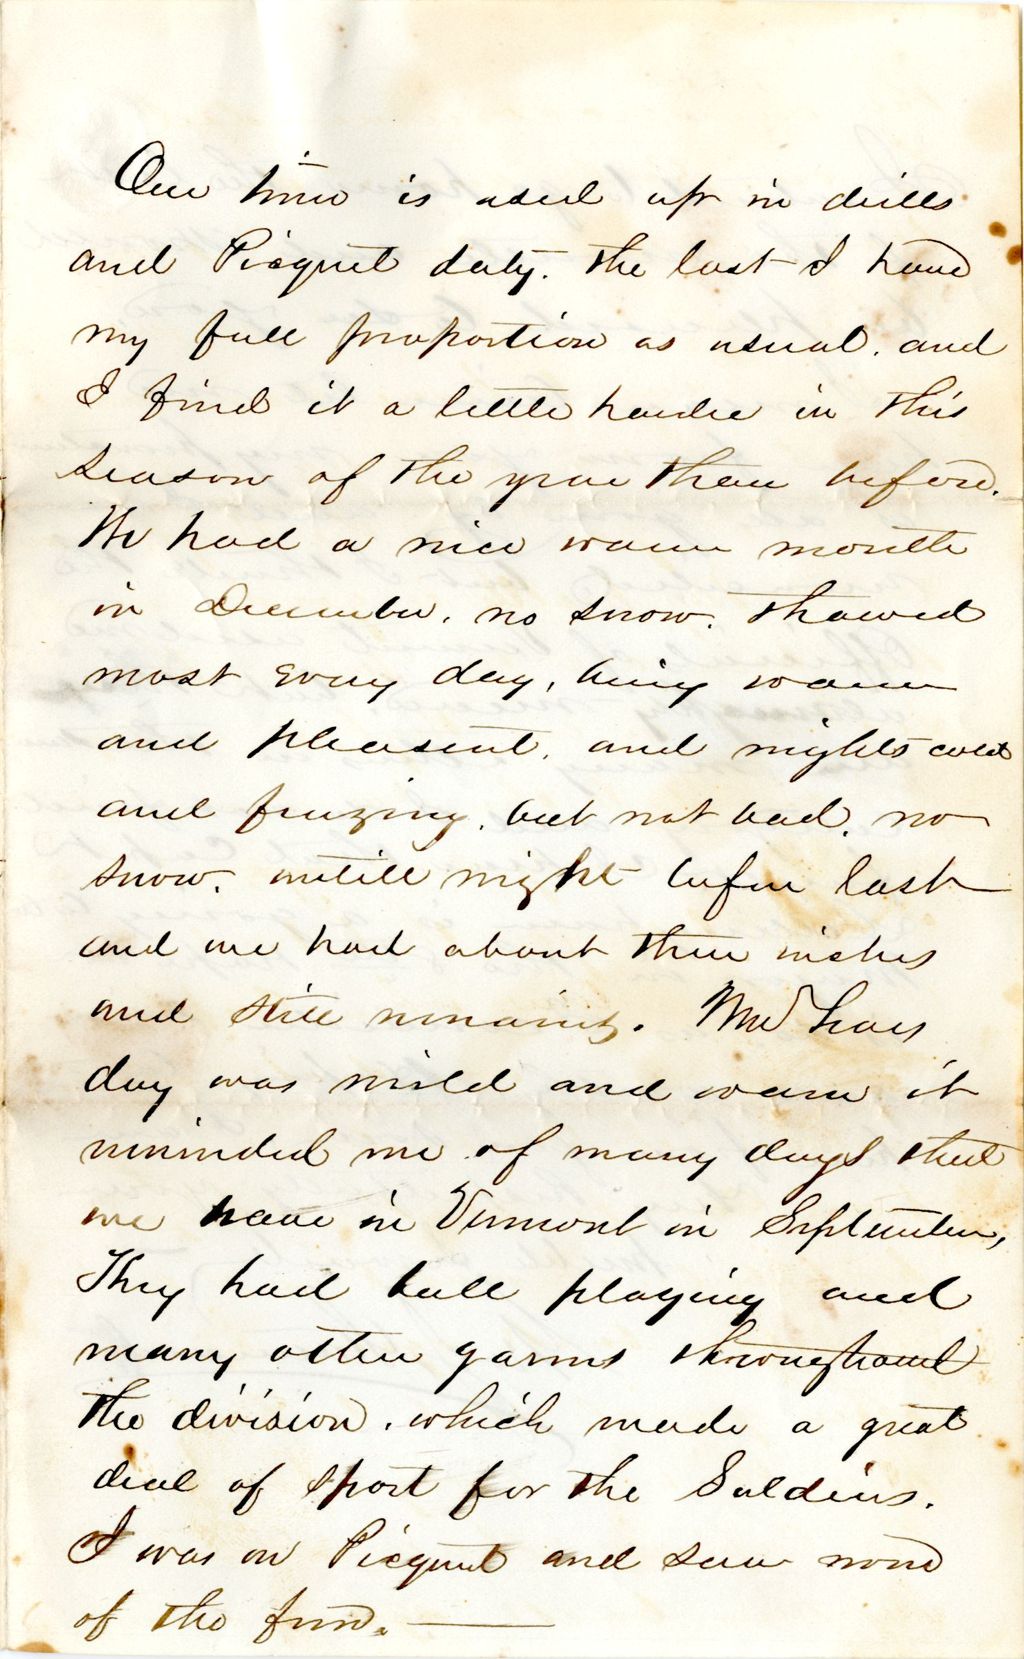 Our time is used up in drills
and Picquet duty. The last I have
my full proportion as usual. and
I find it a little harder in this
season of the year than before.
We had a nice warm month
in December, no snow. thawed
most every day, being warm
and pleasent, and nights cold
and frezing, but not bad. no
snow. untill night before last
and we had about three inches
and still remains. New Years
day was mild and warm it
reminded me of many days that
we have in Vermont in September,
They had ball playing and
many other games throughout
the division. which made a great
deal of sport for the Soldiers.
I was on Picquet and saw none
of the fun.